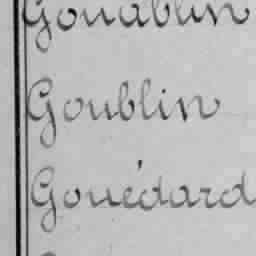 Gouablin
Goublin
Gouédard